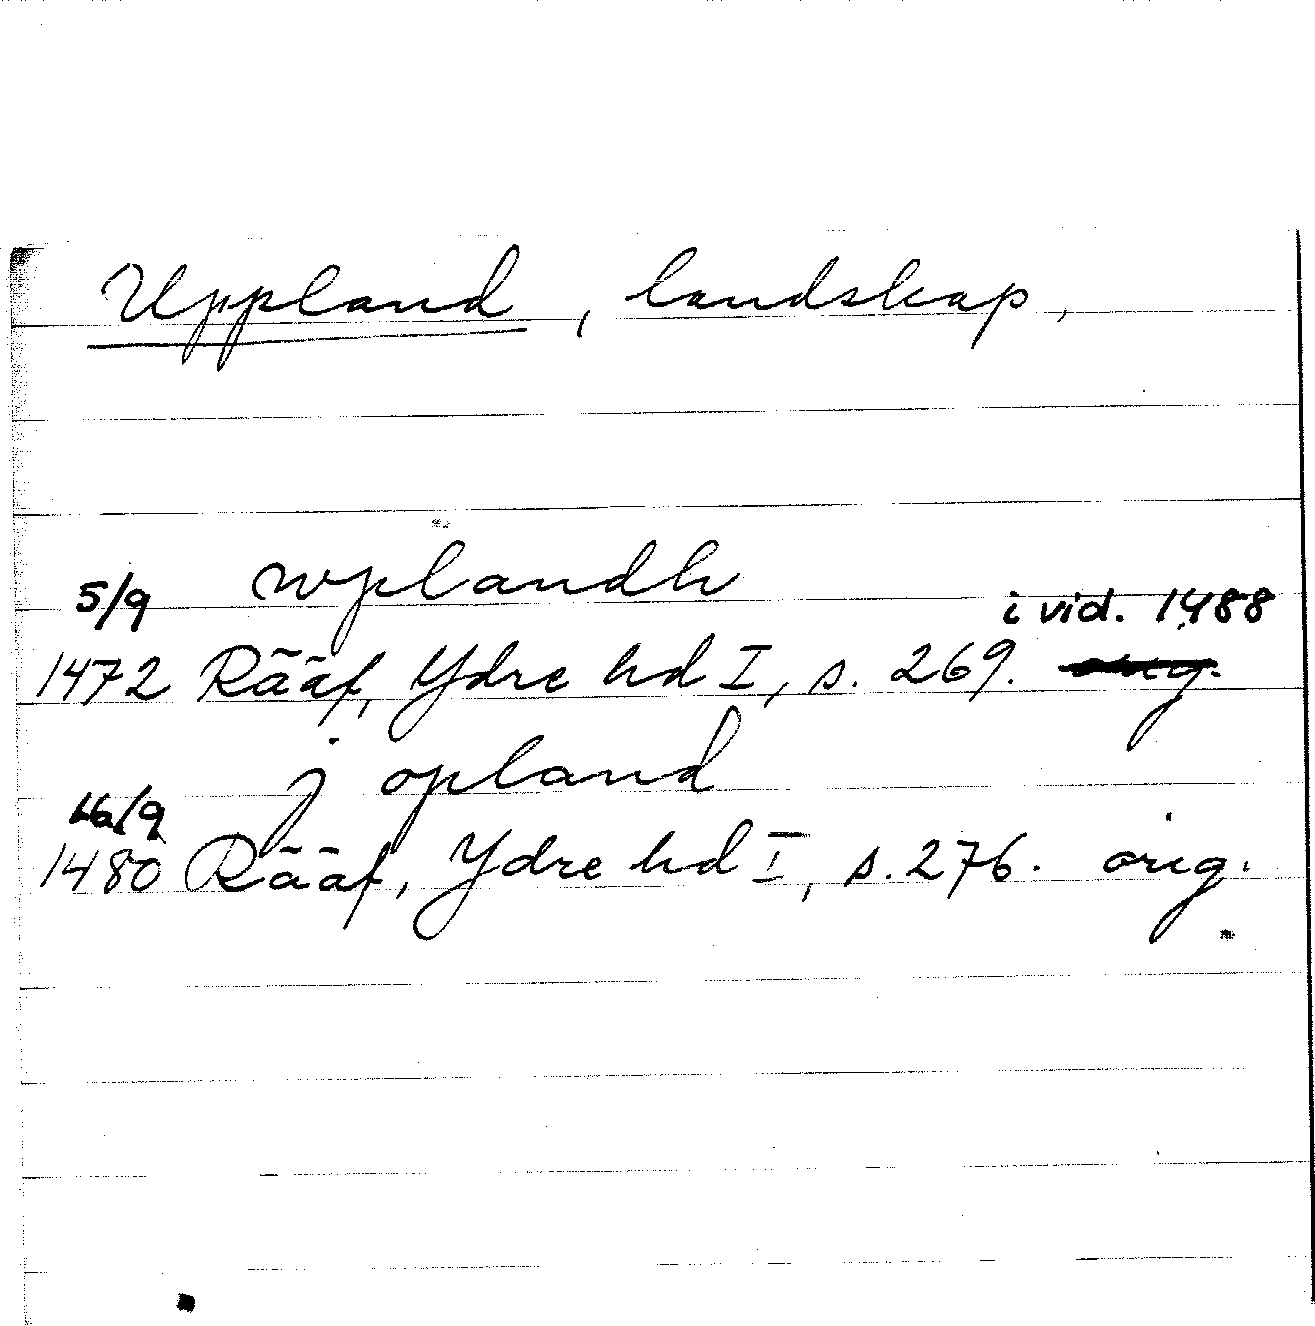 Uppland, landskap,
wplandh
5/9 i vid. 1488
1472 Rääf, Ydre hd I, s. 269.
j opland
1480 Rääf, Ydre hd I, s. 276. orig.